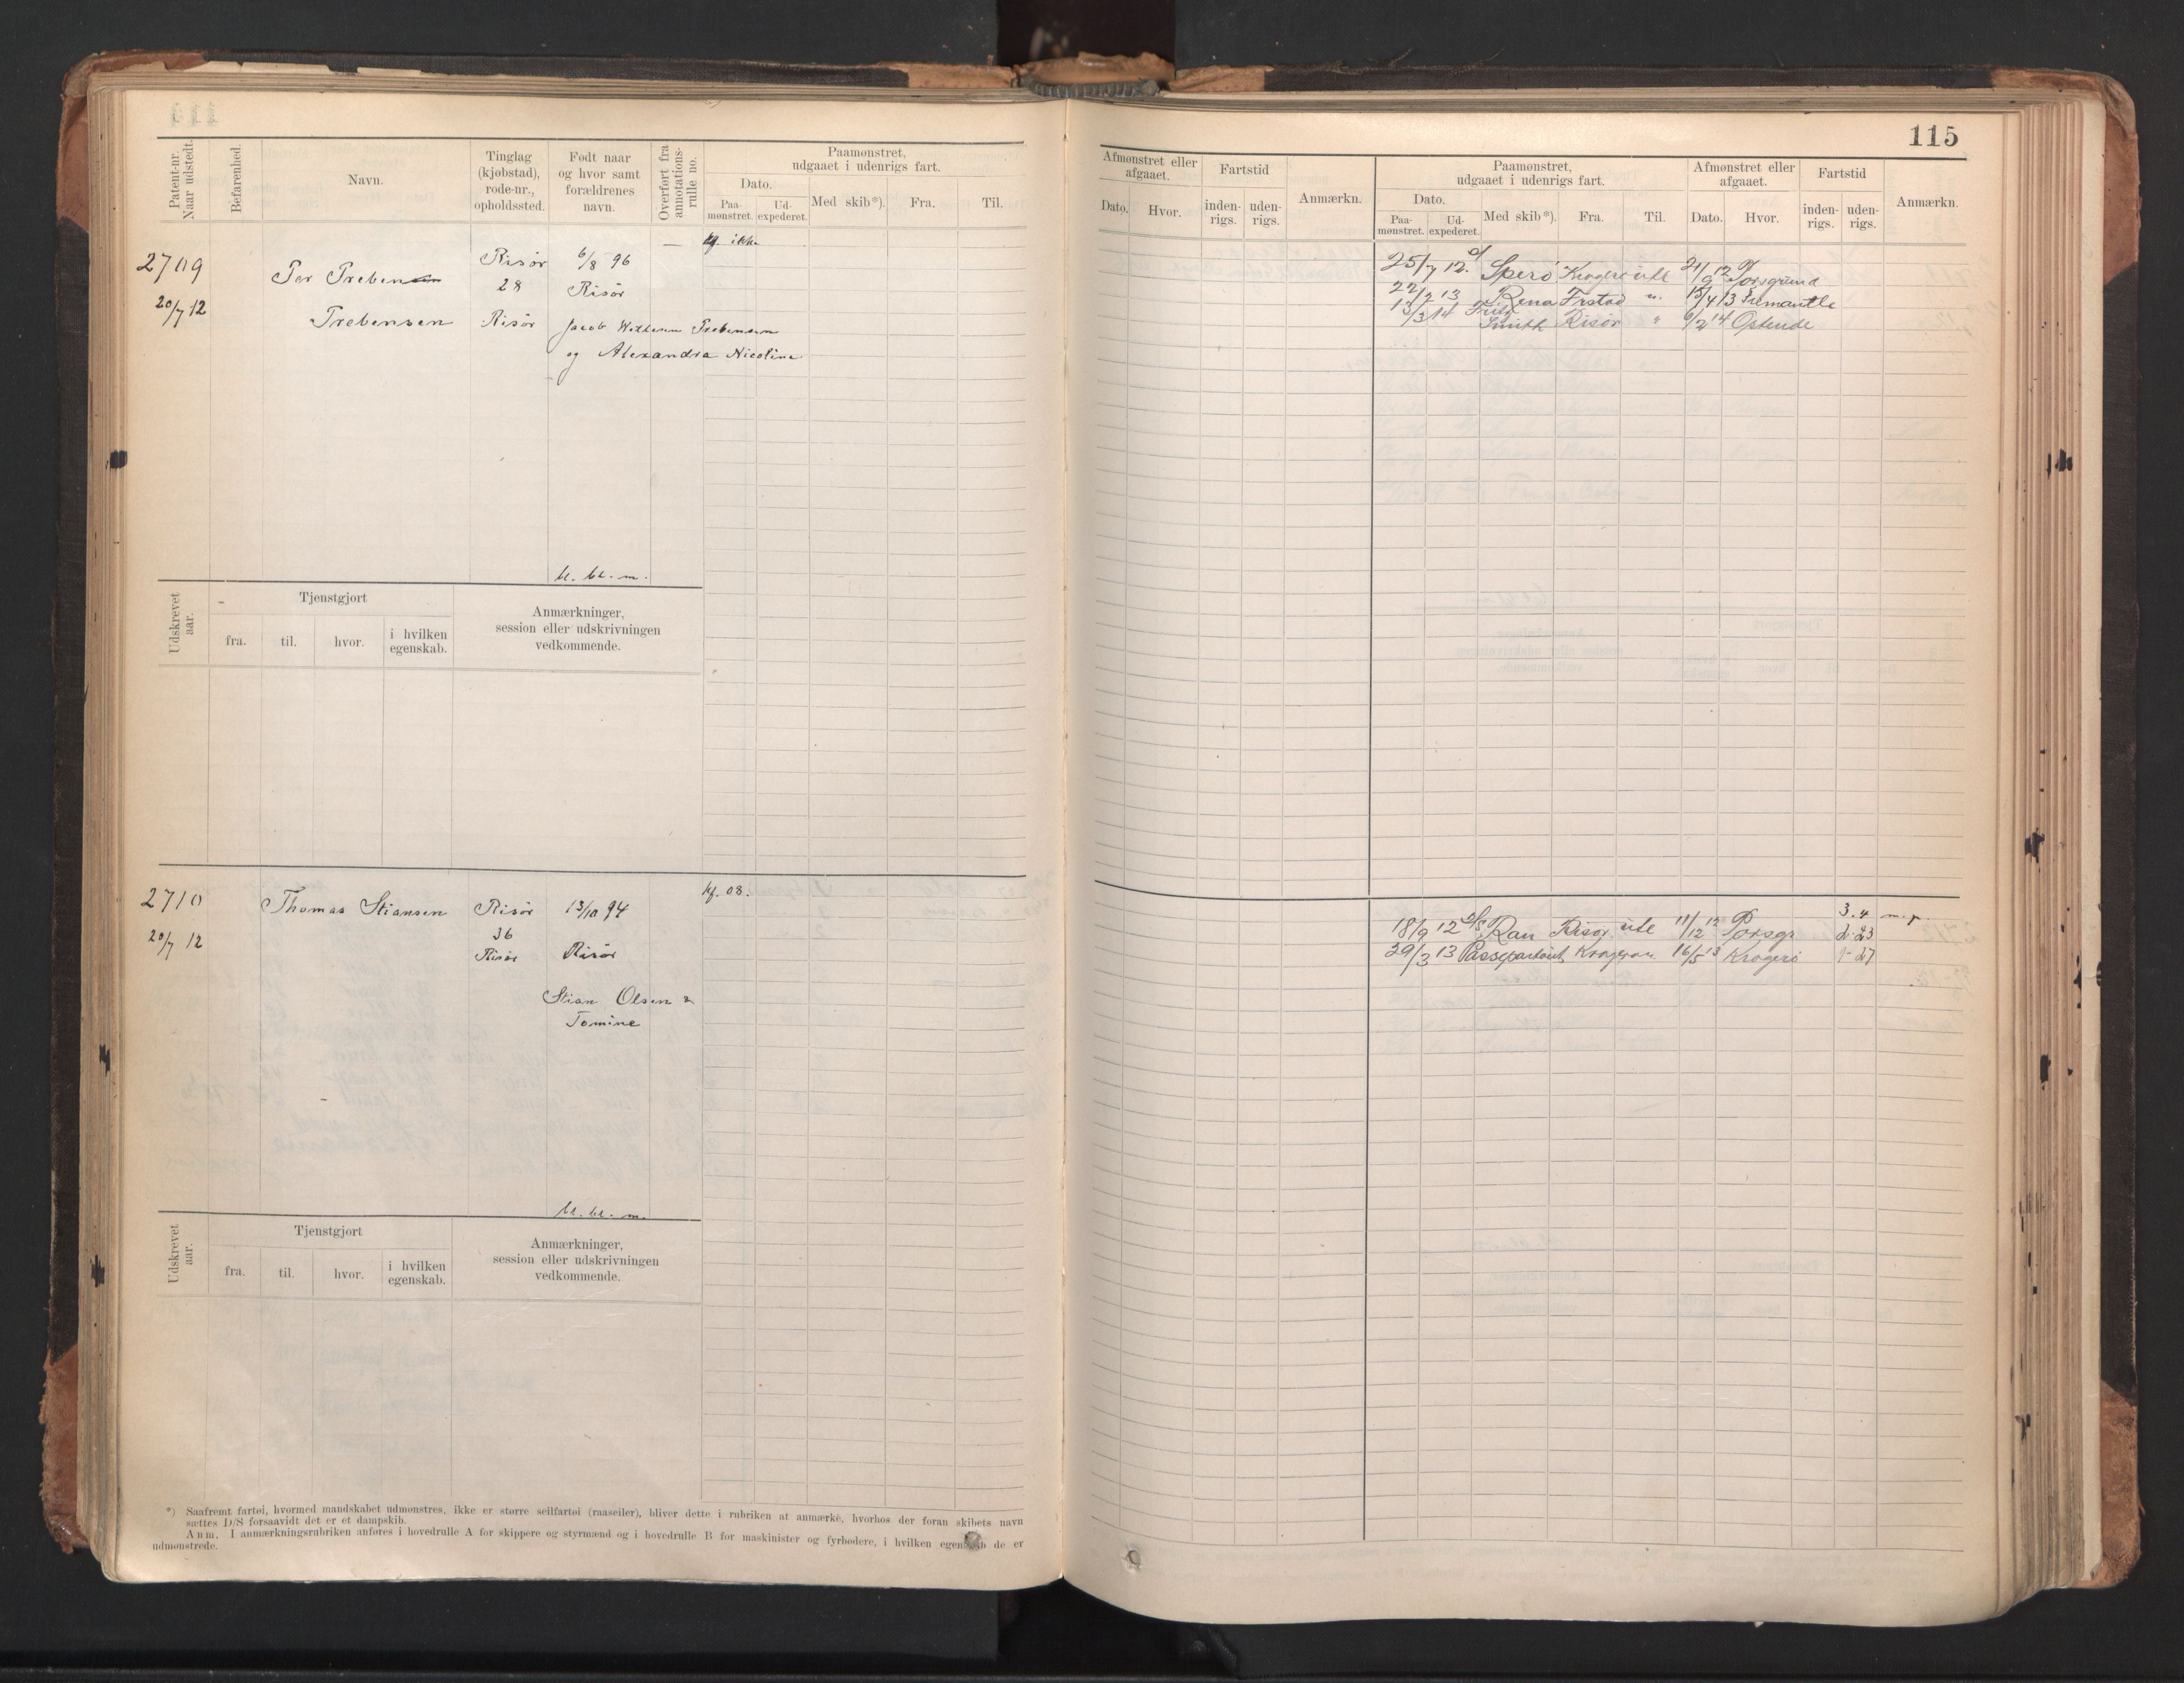 115
Patent-nr. Naar udstedt.
Befarenhed.
Navn.
Tinglag (kjøbstad), rode-nr., opholdssted.
Født naar og hvor samt forældrenes navn.
Overført fra annotations-rulle no.
Paamønstret, udgaaet i udenrigs fart.
Dato.
Paa-mønstret.
Ud-expederet.
Med skib*).
Fra.
Til.
Afmønstret eller afgaaet.
Dato.
Hvor.
Fartstid
inden-rigs.
uden-rigs.
Anmærkn.
Paamønstret, udgaaet i udenrigs fart.
Dato.
Paa-mønstret.
Ud-expederet.
Med skib*).
Fra.
Til.
Afmønstret eller afgaaet.
Dato.
Hvor.
Fartstid
inden-rigs.
uden-rigs.
Anmærkn.
2709
20/7 12
Per Treben
Trebensen
Risör
28
Risör
6/8 96
Risör
Jacob Wilhelm Trebensen
og Alexandra Nicoline
— kf. ikke
bl. bl. m.
25/7 12. Sperö Kragerö ute 21/9 12 Porsgrund
22/2 13 Rena Frstad u. 15/4 13 Fremantle
13/3 14 Smith Risör " 6/2 14 Ostende
Udskrevet aar.
Tjenstgjort
fra.
til.
hvor.
i hvilken egenskab.
Anmærkninger, session eller udskrivningen vedkommende.
2710
20/7 12
Thomas Stiansen
Risör
36
Risör
13/10 94
Risör
Stian Olsen &
Tomine
kf. 08.
bl. bl. m.
3. 4 m. p.
18/9 12 Ran Risör ute 11/12 12 Porsgr 2-23
29/3 13 Passepartout Kragerö u. 16/5 13 Kragerö 1-27
Udskrevet aar.
Tjenstgjort
fra.
til.
hvor.
i hvilken egenskab.
Anmærkninger, session eller udskrivningen vedkommende.
*) Saafremt fartøi, hvormed mandskabet udmønstres, ikke er større seilfartøi (raaseiler), bliver dette i rubriken at anmærke, hvorhos der foran skibets navn
sættes D/S forsaavidt det er et dampskib.
Anm. I anmærkningsrubriken anføres i hovedrulle A for skippere og styrmænd og i hovedrulle B for maskinister og fyrbødere, i hvilken egenskab de er
udmønstrede.